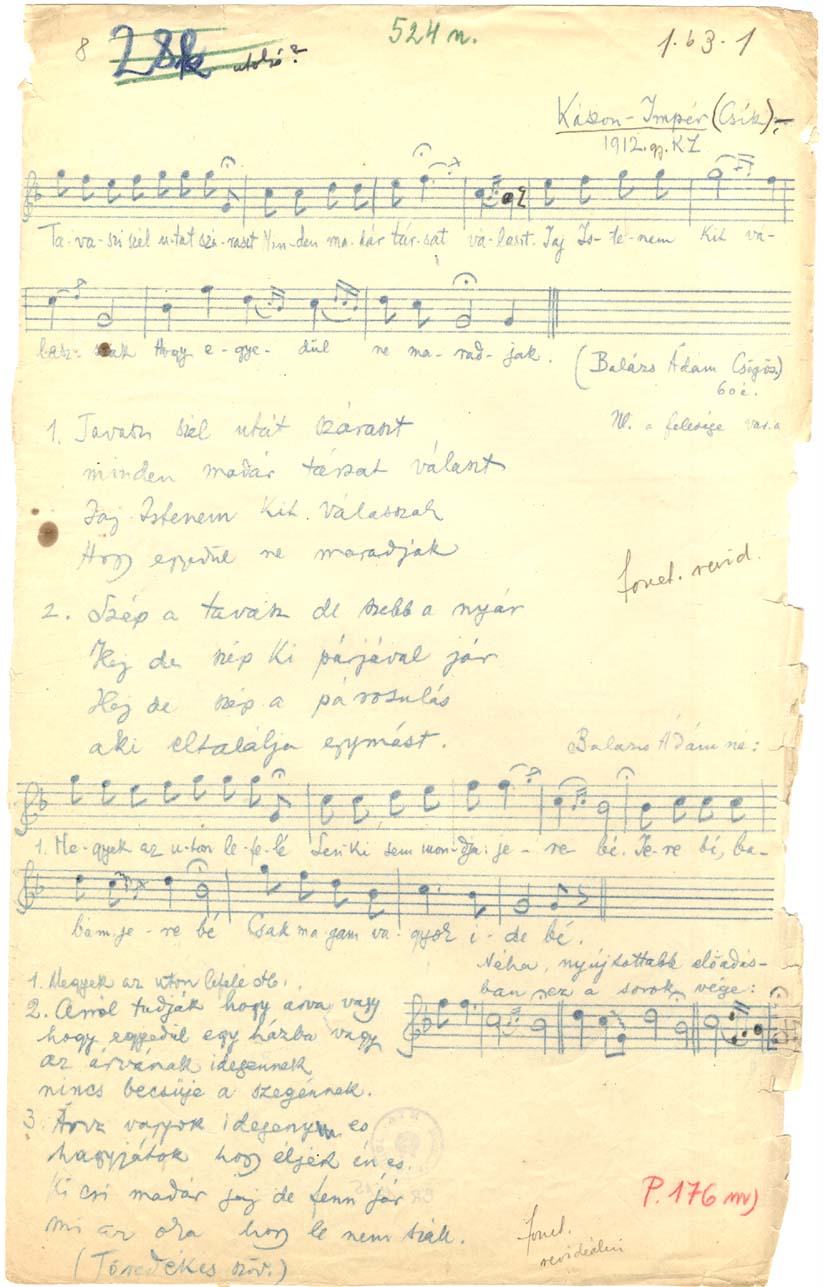 8 28k utolsó?
524 n.
1.63.1
Kászon-Impér (Csík)
1912. gy. KZ
Ta-va-szi szél u-tat szá-raszt Min-den ma-dár tár-sat vá-laszt. Jaj Is-te-nem Kit vá-
lasz-szak Hogy e-gye-dül ne ma-rad-jak.
(Balázs Ádám Csőgös.)
60 é.
N. a felesége var.a
1. Tavaszi szél utát száraszt
minden madár társat választ
Jaj Istenem Kit válasszak
Hogy egyedül ne maradjak
fonet. revid.
2. Szép a tavasz de szebb a nyár
Hej de szép Ki párjával jár
Hej de szép a párosulás
aki eltalálja egymást.
Balázs Ádám né:
1. Me-gyek az u-ton le-fe-lé Sen-ki sem mon-dja: je-re bé. Je-re bé, ba-
bám je-re bé Csak ma-gam va-gyok i-de bé.
Néha, nyújtottabb előadás-
ban ez a sorok vége:
1. Megyek az uton lefelé stb.
2. Arról tudják hogy árva vagy
hogy egyedül egy házba vagy
az árvának idegennek
nincs becsüje a szegénnek.
3. Árva vagyok idegeny es
hagyjátok hogy éljek én es.
Ki csi madár jaj de fenn jár
mi az oka hogy le nem száll.
(Töredékes szöv.)
P. 176 mv)
fonet.
revideálni